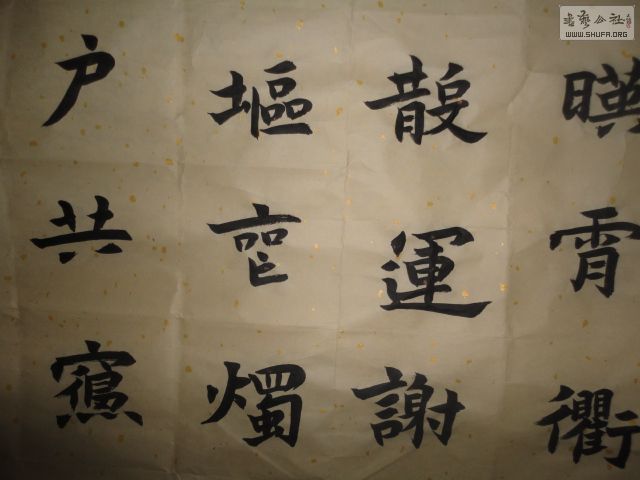 暎霄衢
散運謝
塸燭
户共
書藝公社
WWW.SHUFA.ORG